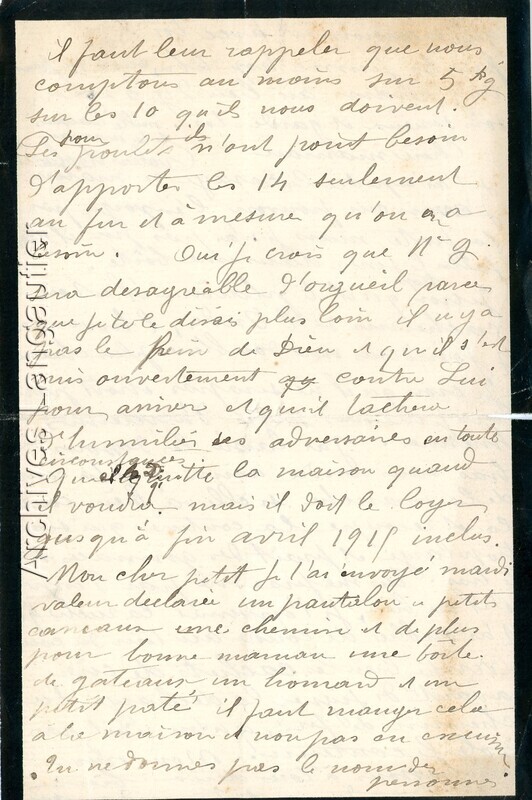 il faut leur rappeler que nous
comptons au moins sur 5 kg
sur les 10 qu'ils nous doivent.
pour ils
Les poulets n'ont point besoin
d'apporter les 14 seulement
au fur et à mesure qu'on en a
besoin. Oui je crois que Mr G.
sera desagréable d'orgueil parce
que je te le disais plus loin il n'y a
pas le de Dieu et qu'il s'est
mis ouvertement contre Lui
pour arriver et qu'il tachera
d'humilier ses adversaires en toute
circonstances
quitte la maison quand
il voudra mais il doit le loyer
jusqu'à fin avril 1915 inclus.
Mon cher petit je t'ai envoyé mardi
valeur declarée un pantalon a petits
carreaux une chemise et de plus
pour bonne maman une boîte
de gateaux un homard et un
petit paté il faut manger cela
à la maison et non pas en
Tu ne donnes pas le nom des
personnes
Archives Langautier